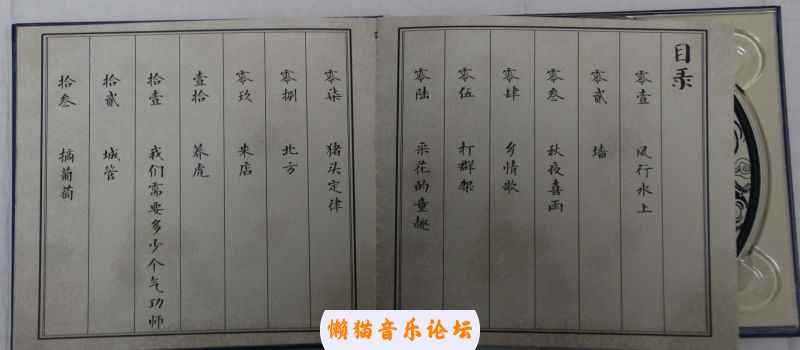 目录
零壹 风行水上
零贰 墙
零叁 秋夜喜雨
零肆 乡情歌
零伍 打群架
零陆 采花的童趣
零柒 猪头定律
零捌 北方
零玖 来店
壹拾 养虎
拾壹 我们需要多少个气功师
拾贰 城管
拾叁 摘葡萄
懒猫音乐论坛